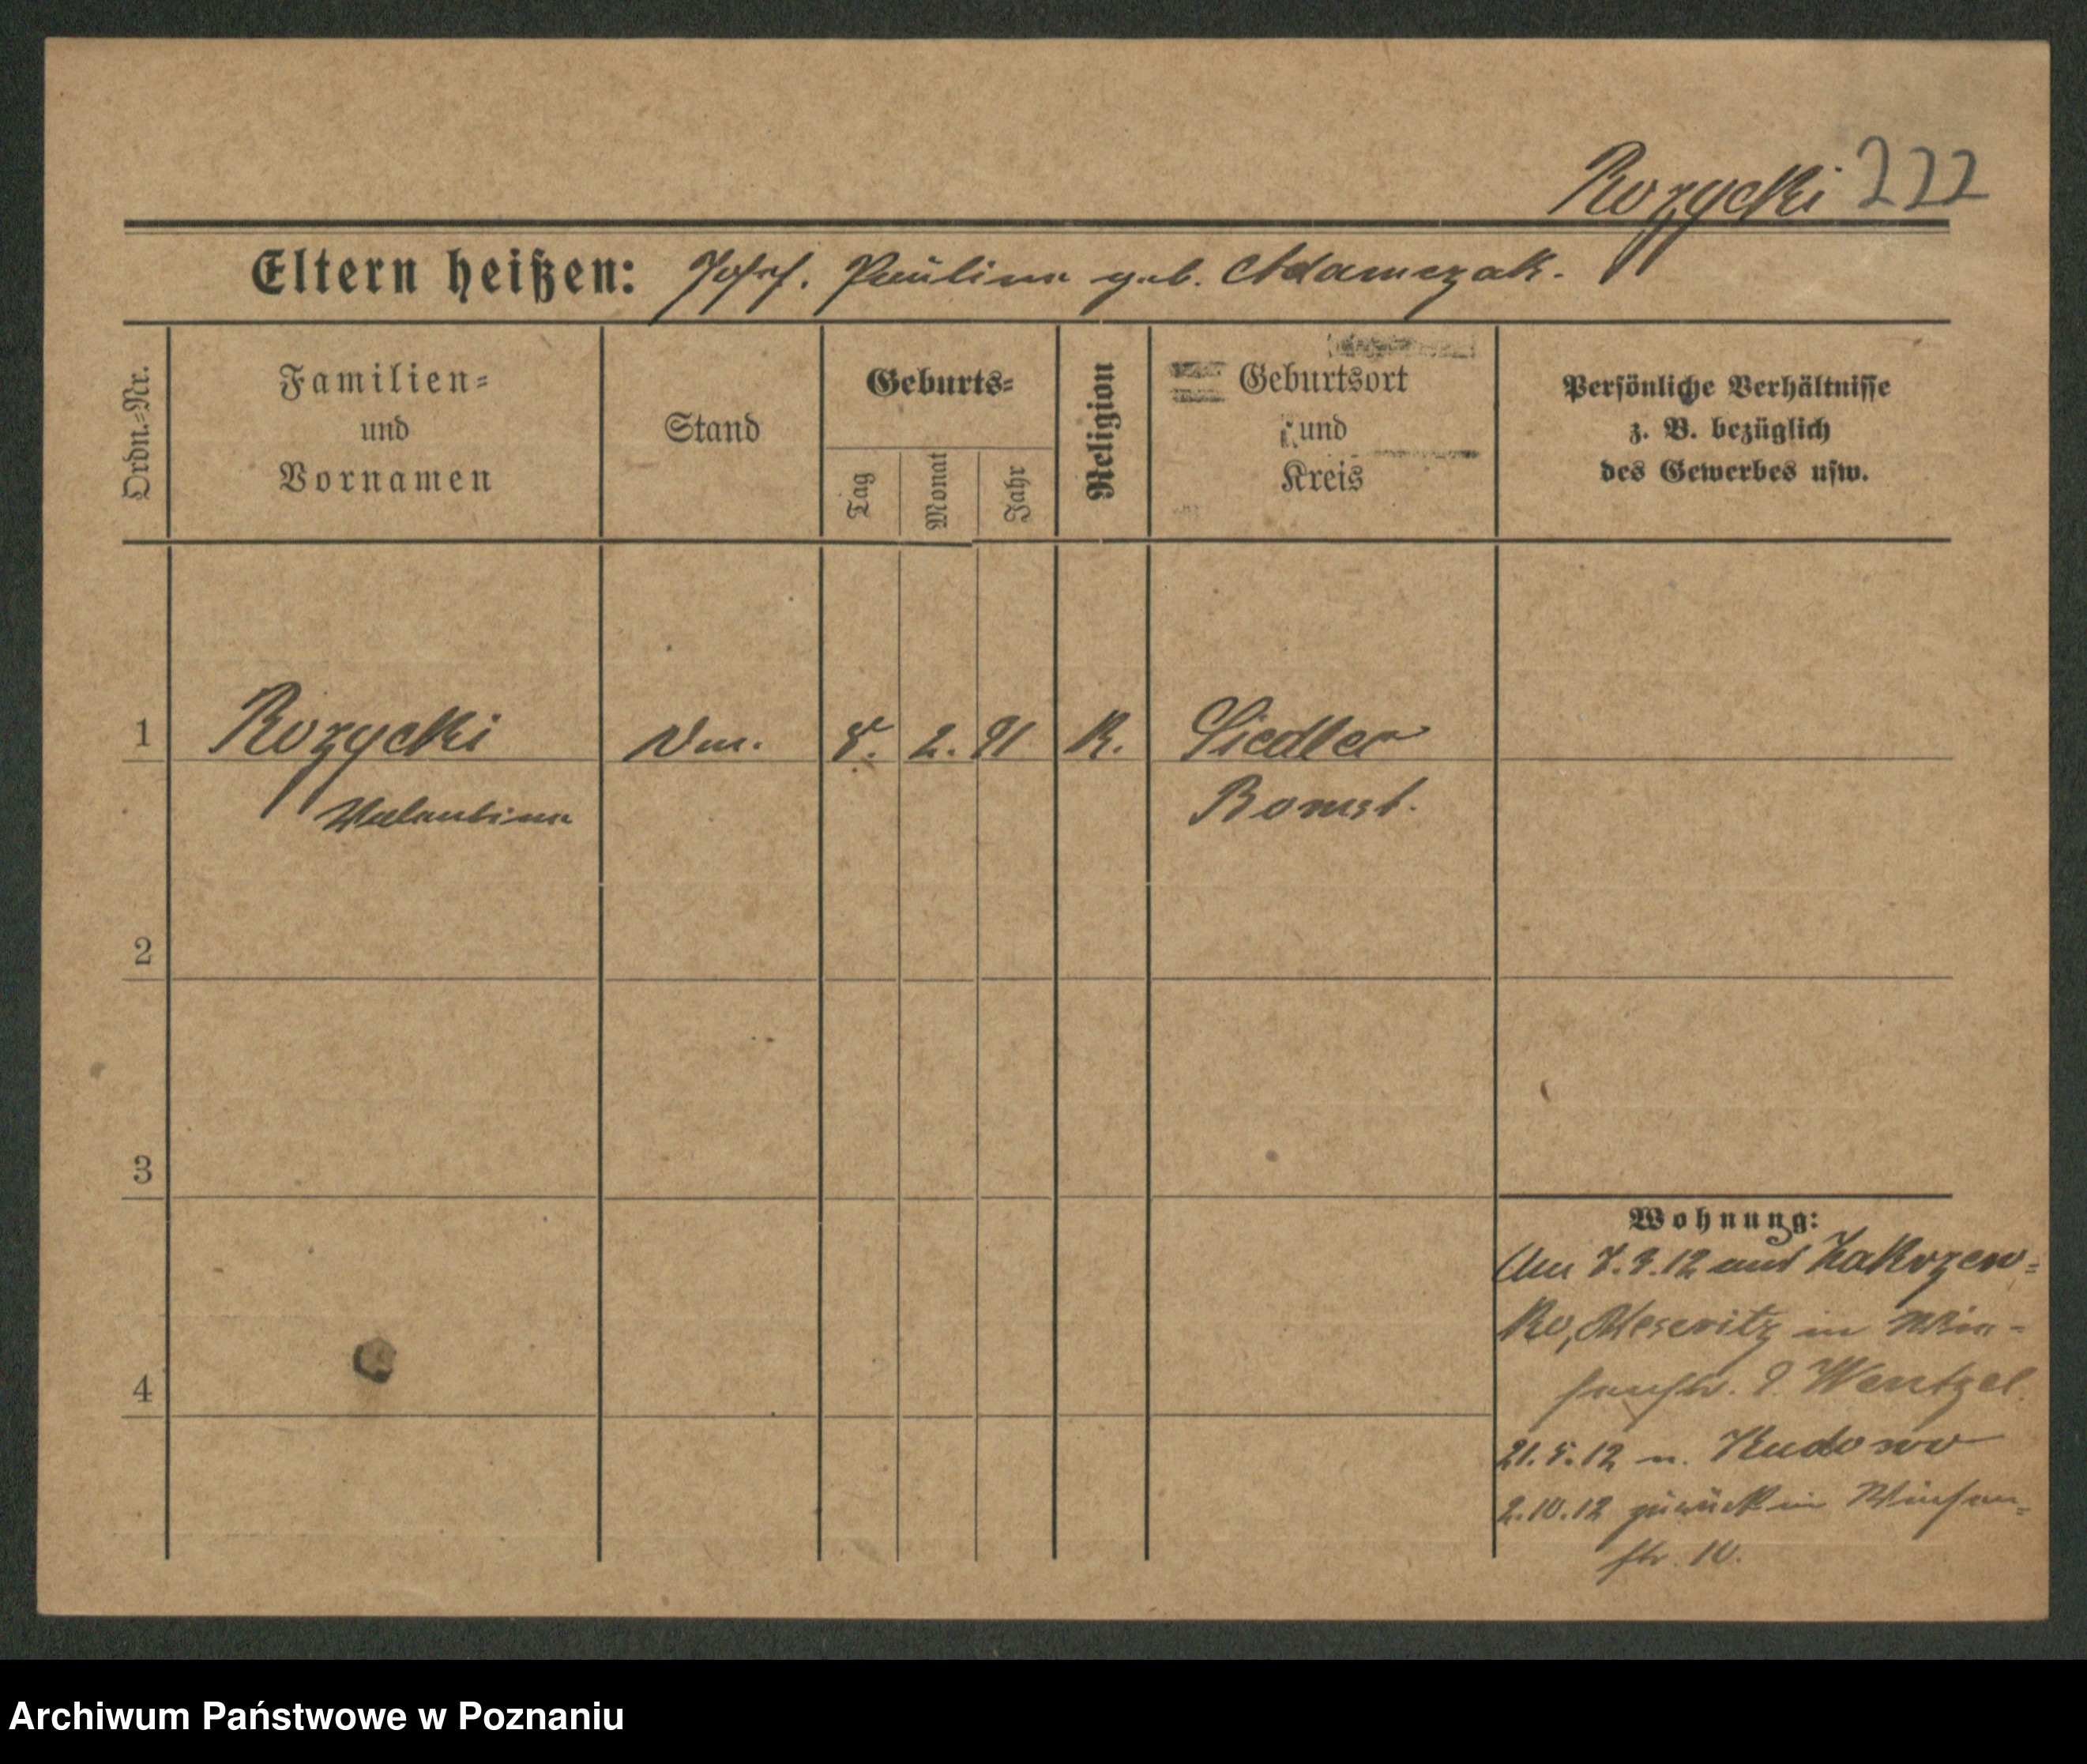 Rozycki 222
Eltern heißen: Josef. Paulina geb. Adamczak.
Ordn.-Nr.
Familien-
und
Vornamen
Stand
Geburts-
Tag
Monat
Jahr
Religion
Geburtsort
und
Kreis
Persönliche Verhältnisse
z. B. bezüglich
des Gewerbes usw.
1 Rozycki 8. 2. 91 K. Siedlec
Valentina Bomst.
2
3
4
Wohnung:
Am 7.3.12 aus Zakrzew-
ko, Meseritz in Wiu-
senstr. 9. Wentzel.
21.5.12 n. Kudowo
2.10.12 zurück in
str. 10.
Archiwum Państwowe w Poznaniu